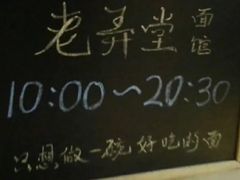 老弄堂面馆
10:00~20:30
只想做一碗好吃的面